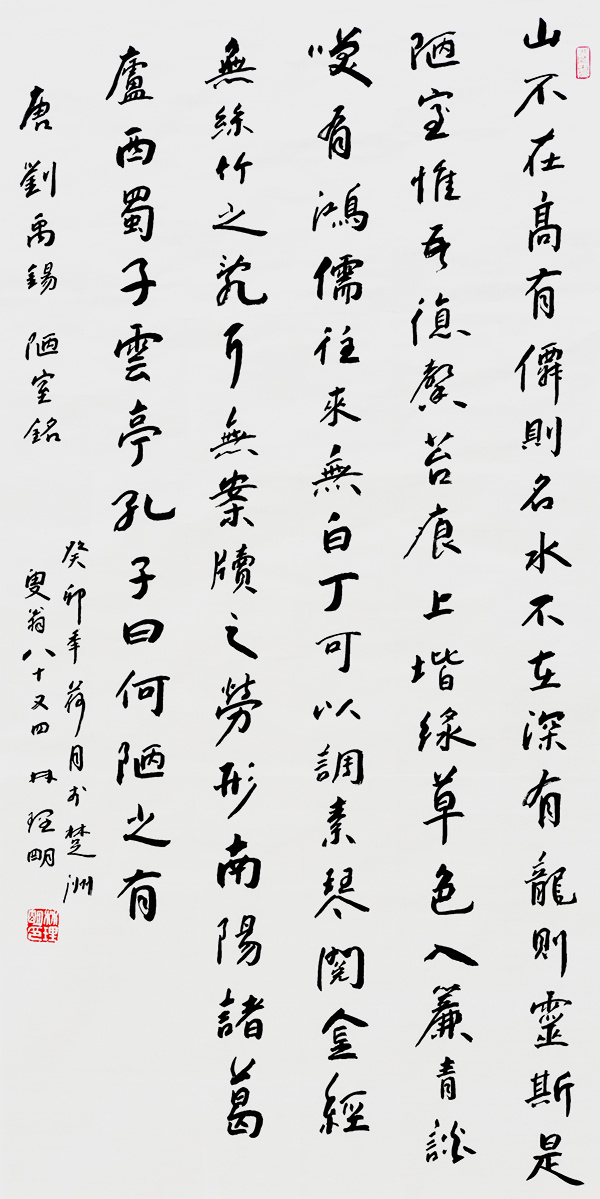 山不在高有僊則名水不在深有龍則靈斯是
陋室惟吾德馨苔痕上堦緑草色入簾青談
咲有鴻儒往來無白丁可以調素琴閱金經
無絲竹之亂耳無案牘之勞形南陽諸葛
廬西蜀子雲亭孔子曰何陋之有
唐劉禹錫 陋室銘
癸卯年荷月於楚洲
叟翁八十又四林理明